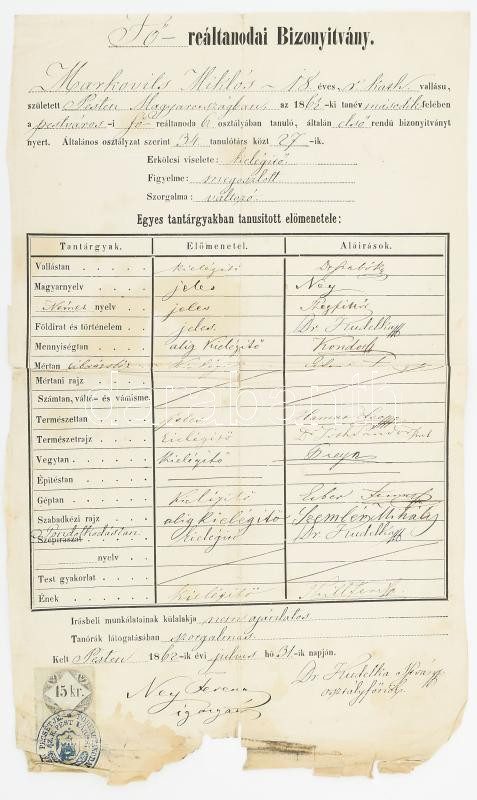 Fő- reáltanodai Bizonyitvány.
Markovits Miklós – 18 éves, r. kath. vallásu,
született Pesten Magyarországban, az 1862-ki tanév második felében
a pestváros-i fő- reáltanoda 6 osztályában tanuló, általán első rendü bizonyitványt
nyert. Általános osztályzat szerint 34 tanulótárs közt 27-ik.
Erkölcsi viselete: kielégitő
Figyelme: megosztott
Szorgalma: változó
Egyes tantárgyakban tanusitott előmenetele:
Tantárgyak. Előmenetel. Aláirások.
Vallástan kielégitő
Magyarnyelv jeles Ney
Német nyelv jeles
Földirat és történelem jeles. Dr Hudelka
Mennyiségtan alig kielégitő Kondor
Mértan
Mértani rajz
Számtan, váltó- és vámisme.
Természettan jeles
Természetrajz kielégitő
Vegytan kielégitő
Épitéstan
Géptan kielégitő
Szabadkézi rajz alig kielégitő Szemlér Mihály
Szépirászat Gondolkodástan kielégitő Dr Hudelka
nyelv
Test gyakorlat
Ének kielégitő
Irásbeli munkálatainak külalakja nem ajánlatos
Tanórák látogatásában szorgalmas.
Kelt Pesten 1862-ik évi julius hó 31-ik napján.
15 kr.
Ney Ferenc
igazgató
Dr Hudelka
osztályfőnök
darabanth